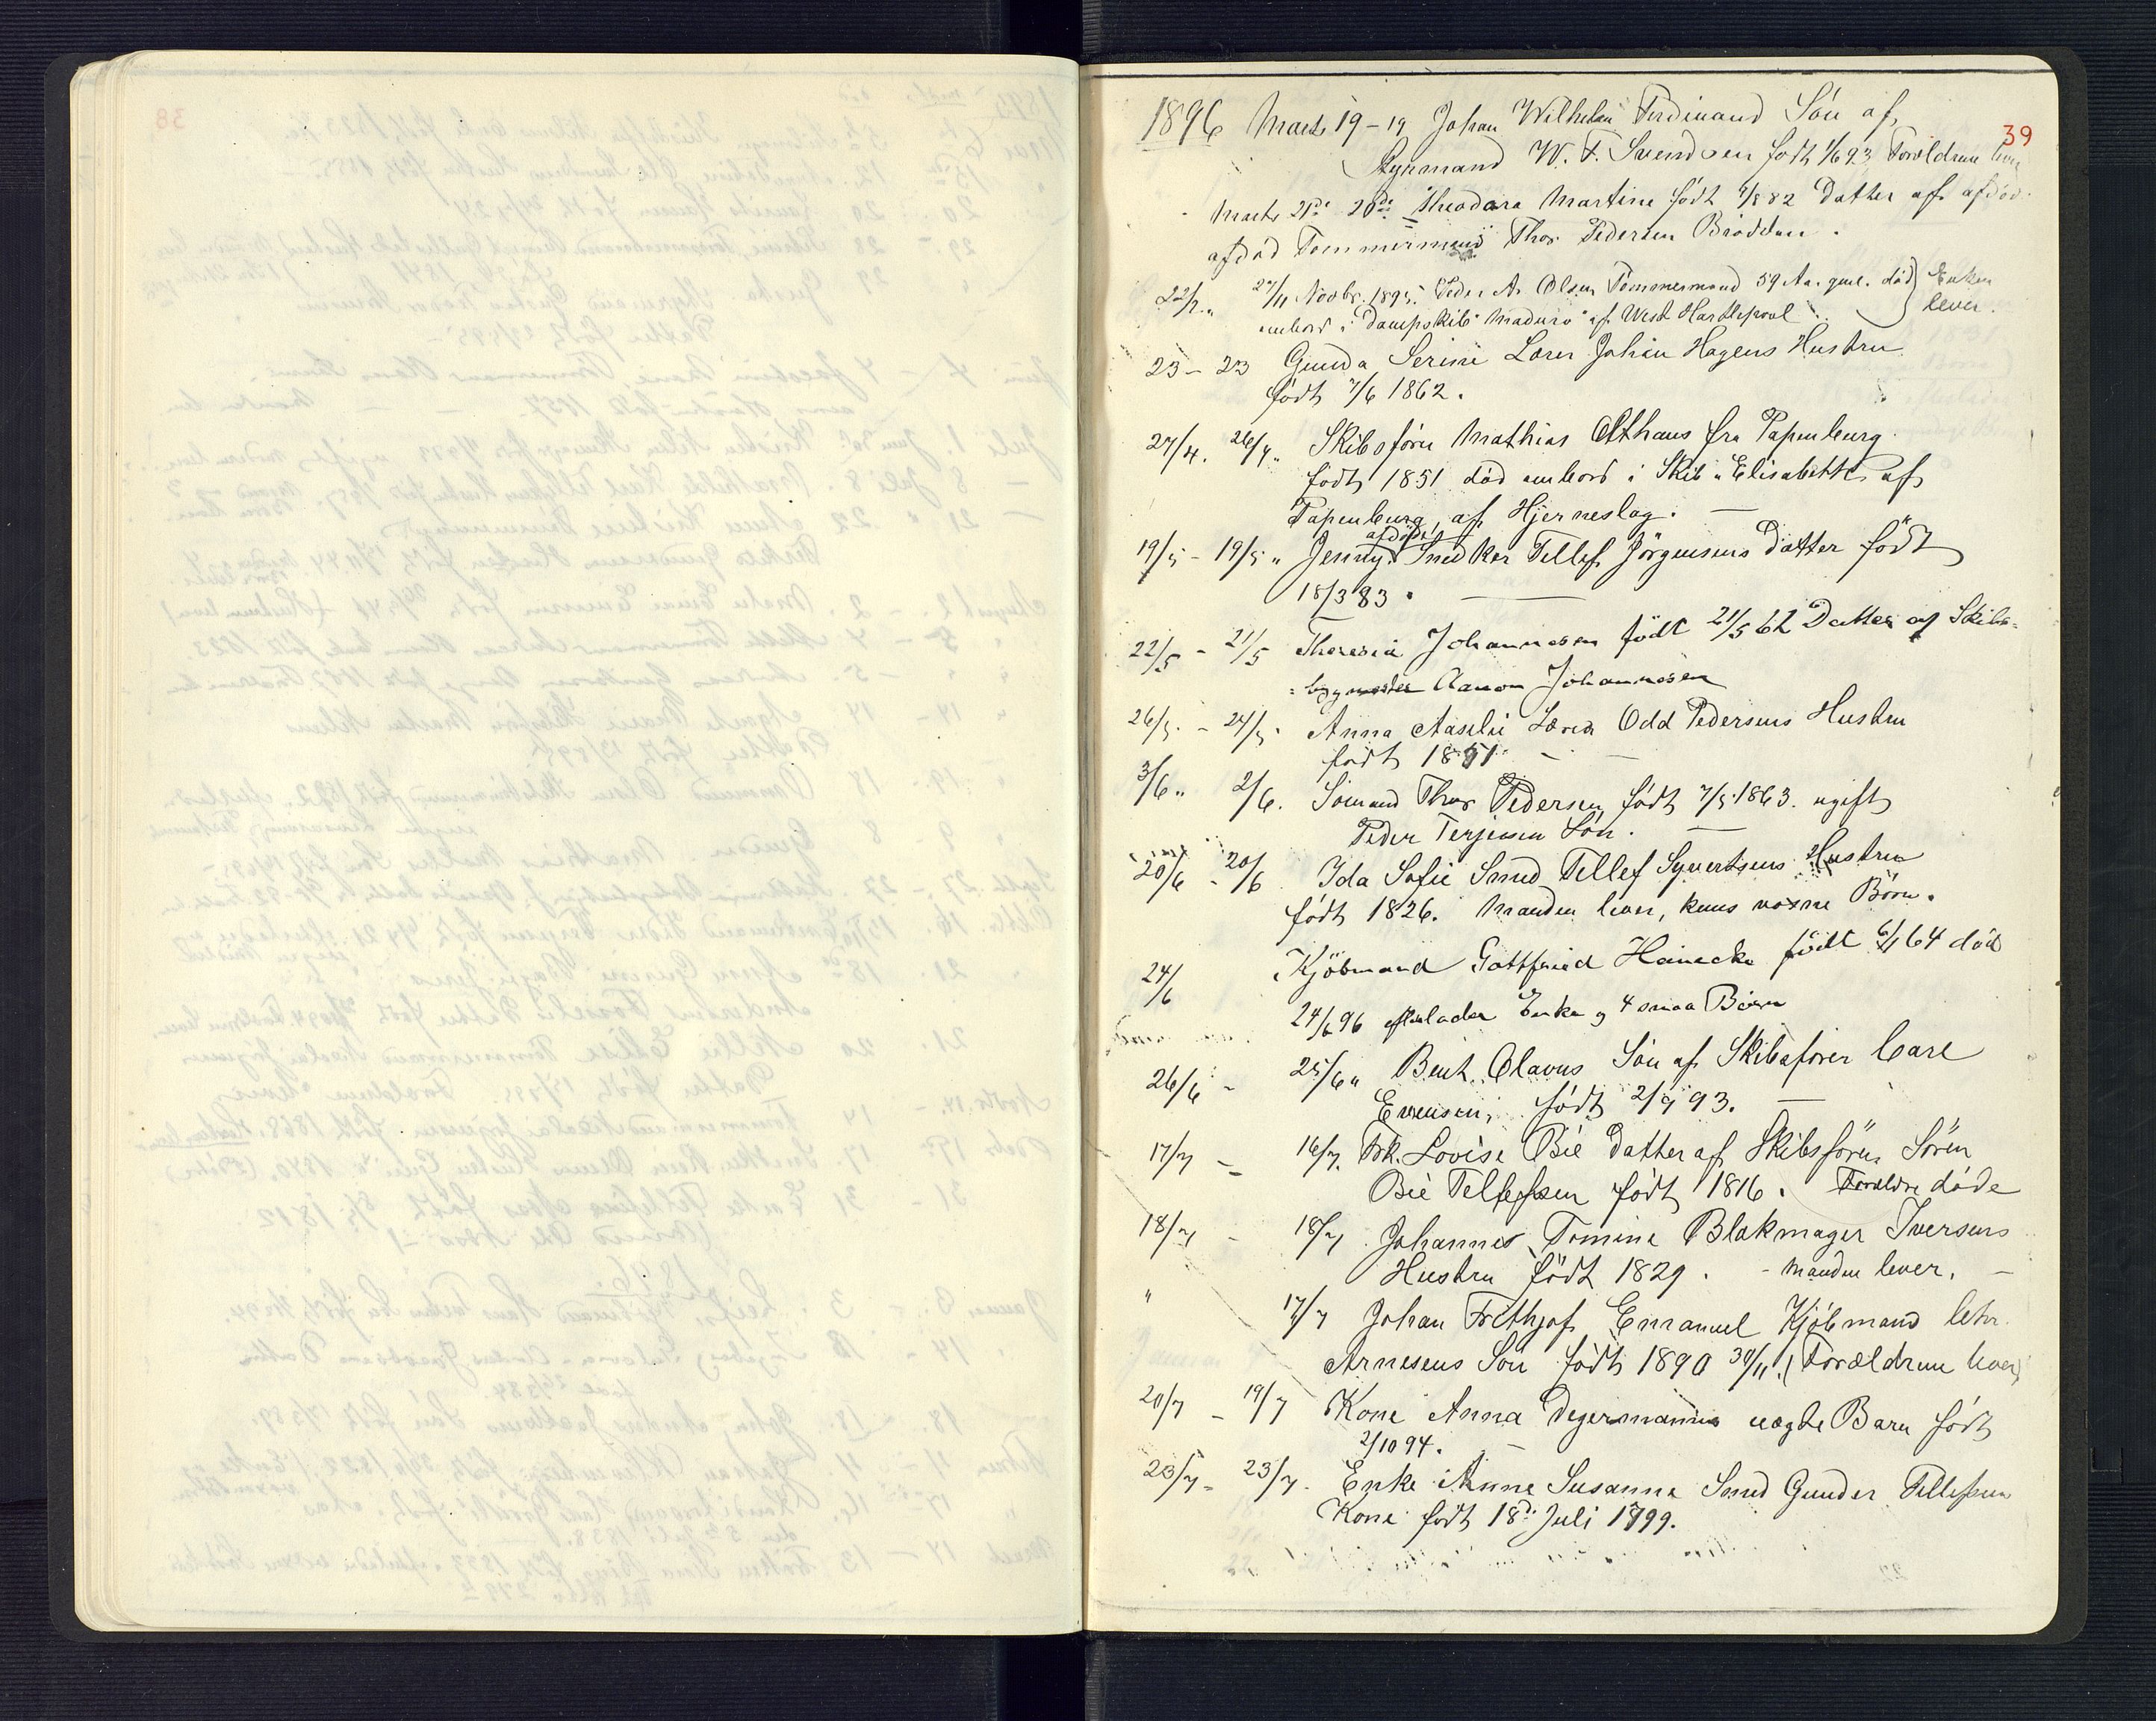 39
1896 Marts 19 - 19 Johan Wilhelm Ferdinand Sön af
Styrmand W. F. Svendsen födt 1/6 93 Forældrene lever
Marts 21de 20de Theodora Martine födt 4/8 82 Datter af afdöd
afdöd Tömmermand Thor Pedersen Brödden.
22/3 " 27/11 Novbr. 1895. Peder A. Olsen Tömmermand 59 Aar gml. död } Enken
ombord i Dampskib "Maduro" af West Hartlepool. lever.
23 - 23 Gunda Serine Lærer Johan Hagens Hustru
födt 7/6 1862.
27/4. 26/4 " Skibsförer Mathias Olthaus fra Papenburg
födt 1851 död ombord i Skib "Elisabeth" af
Papenburg, af Hjerneslag. —
19/5 - 19/5 " Jenny, afdöde Snedker Tellef Jörgensens Datter födt
18/3 83. —
22/5 - 21/5 Theresia Johannesen födt 21/5 62 Datter af Skibs-
=bygmester Aanon Johannesen
26/5. - 24/5. Anna Aaselie Lærer Odd Pedersens Hustru
födt 1851 - —
3/6 " 2/6. Sömand Thor Pedersen födt 7/5 1863. ugift
Peder Terjesen Sön. —
20/6 - 20/6 Ida Sofie Smed Tellef Syvertsens Hustru
födt 1826. Manden lever, kuns voxne Börn.
24/6 Kjöbmand Gottfried Heinecke födt 6/1 64 död
24/6 96 efterlader Enke og 4 smaa Börn
26/6 - 25/6 " Bent Olavus Sön af Skibsförer Carl
Evensen, födt 2/9 93. —
17/7 - 16/7. Frk. Lovise Bie Datter af Skibsförer Sören
Bie Tellefsen födt 1816. Forældre döde
18/7 - 18/7. Johannes Tomine Blakmager Iversens
Hustru födt 1829. - Manden lever. —
" 17/7 Johan Frithjof Emanuel Kjöbmand Chr.
Arnesens Sön födt 1890 30/11. (Forældrene lever)
20/7 - 19/7 Kone Anna Degermanns uægte Barn födt
2/10 94. —
23/7 - 23/7. Enke Anne Susanne Smed Gunder Tellefsen
Kone födt 18de Juli 1799.